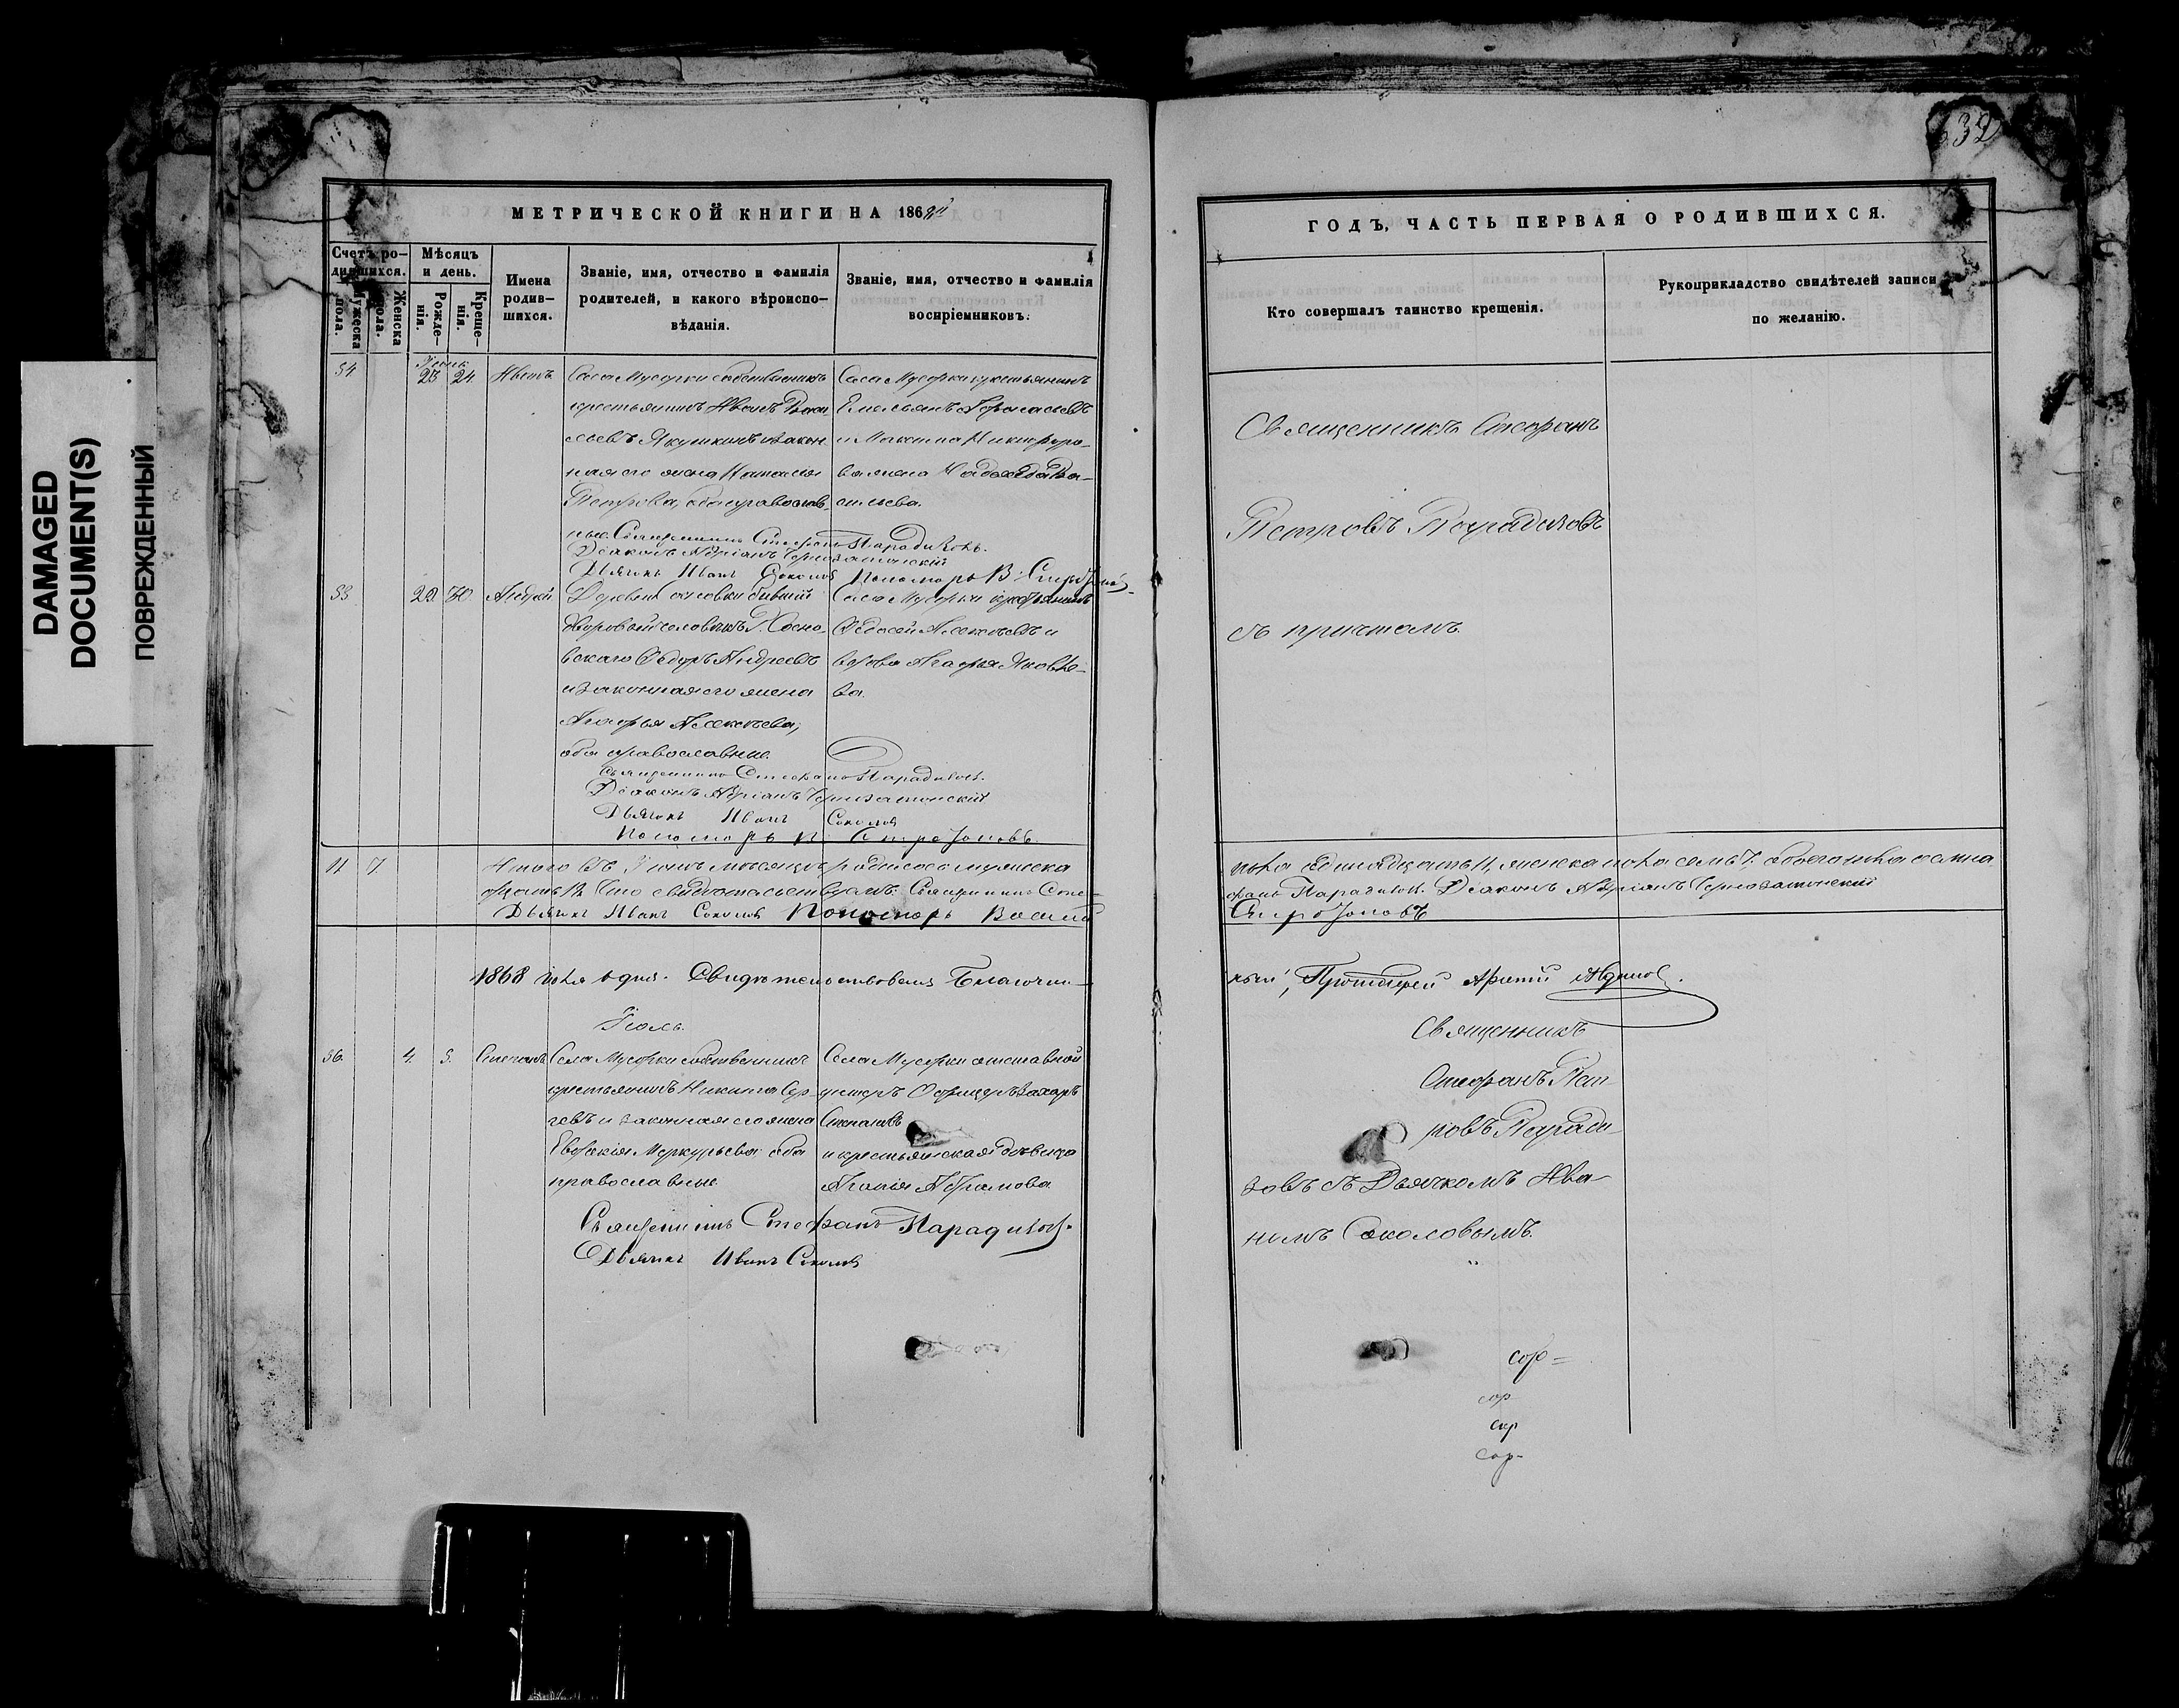 DAMAGED
DOCUMENT(S)
ПОВРЕЖДЕННЫЙ
632
МЕТРИЧЕСКОЙ КНИГИ НА 1868й
Счетъ ро-
дившихся.
Мужеска
пола.
Женска
пола.
Мѣсяцъ
и день.
Рожде-
нія.
Креще-
нія.
Имена
родив-
шихся.
Званіе, имя, отчество и фамилія
родителей, и какого вѣроиспо-
вѣданія.
Званіе, имя, отчество и фамилія
воспріемниковъ.
Іюнь
34 23 24 Иванъ
Села Мусорки собственникъ
крестьянинъ Иванъ Васи
льевъ Якушкинъ и закон
ная его жена Наталья
Петрова, оба православ
ные. Священникъ Стефанъ Парадизовъ.
Діаконъ Адріанъ Чернозатонскій
Дьячокъ Иванъ Соколовъ Пономарь В.
Села Мусорки крестьянинъ
Емельянъ Афанасьевъ
и Максима Никифоро-
ва жена Ва-
сильева.
35 29 30 Андрей
Деревни бывшій
дворовый человѣкъ Г. Сосно
вскаго Ѳедоръ Андреевъ
и законная его жена
Агафья Алексѣева,
оба православные.
Священникъ Стефанъ Парадизовъ.
Діаконъ Адріанъ Чернозатонскій
Дьячокъ Иванъ Соколовъ
Пономарь В.
Села Мусорки крестьянинъ
Ѳедосей Алексѣевъ и
вдова Агафья Яковле-
ва.
11 7. Итого въ Іюнѣ мѣсяцѣ родилось мужеска
Что свидѣтельствуемъ: Священникъ Сте-
Дьячокъ Иванъ Соколовъ Пономарь Василій
1868 Іюля 1 дня. Свидѣтельствовалъ Благочин-
Іюль.
36. 4. 5. Степанъ
Села Мусорки собственникъ
крестьянинъ Никита Сер-
гевъ и законная его жена
Евдокія Меркурьева оба
православные
Священникъ Стефанъ Парадизовъ.
Дьячокъ Иванъ Соколовъ
Села Мусорки отставной
унтеръ Офицеръ Захаръ
Степановъ
и крестьянская дѣвица
Абрамова
ГОДЪ, ЧАСТЬ ПЕРВАЯ О РОДИВШИХСЯ.
Кто совершалъ таинство крещенія.
Рукоприкладство свидѣтелей записи
по желанію.
Священникъ Стефанъ
Петровъ Парадизовъ
съ причтомъ.
пола одинадцать 11, женска пола семь 7. обоего пола осмна
фанъ Парадизовъ. Діаконъ Адріанъ Чернозатонскій
ный, Протоіерей
Священникъ
Стефанъ Пет
ровъ Паради
зовъ съ Дьячкомъ Ива
номъ Соколовымъ.